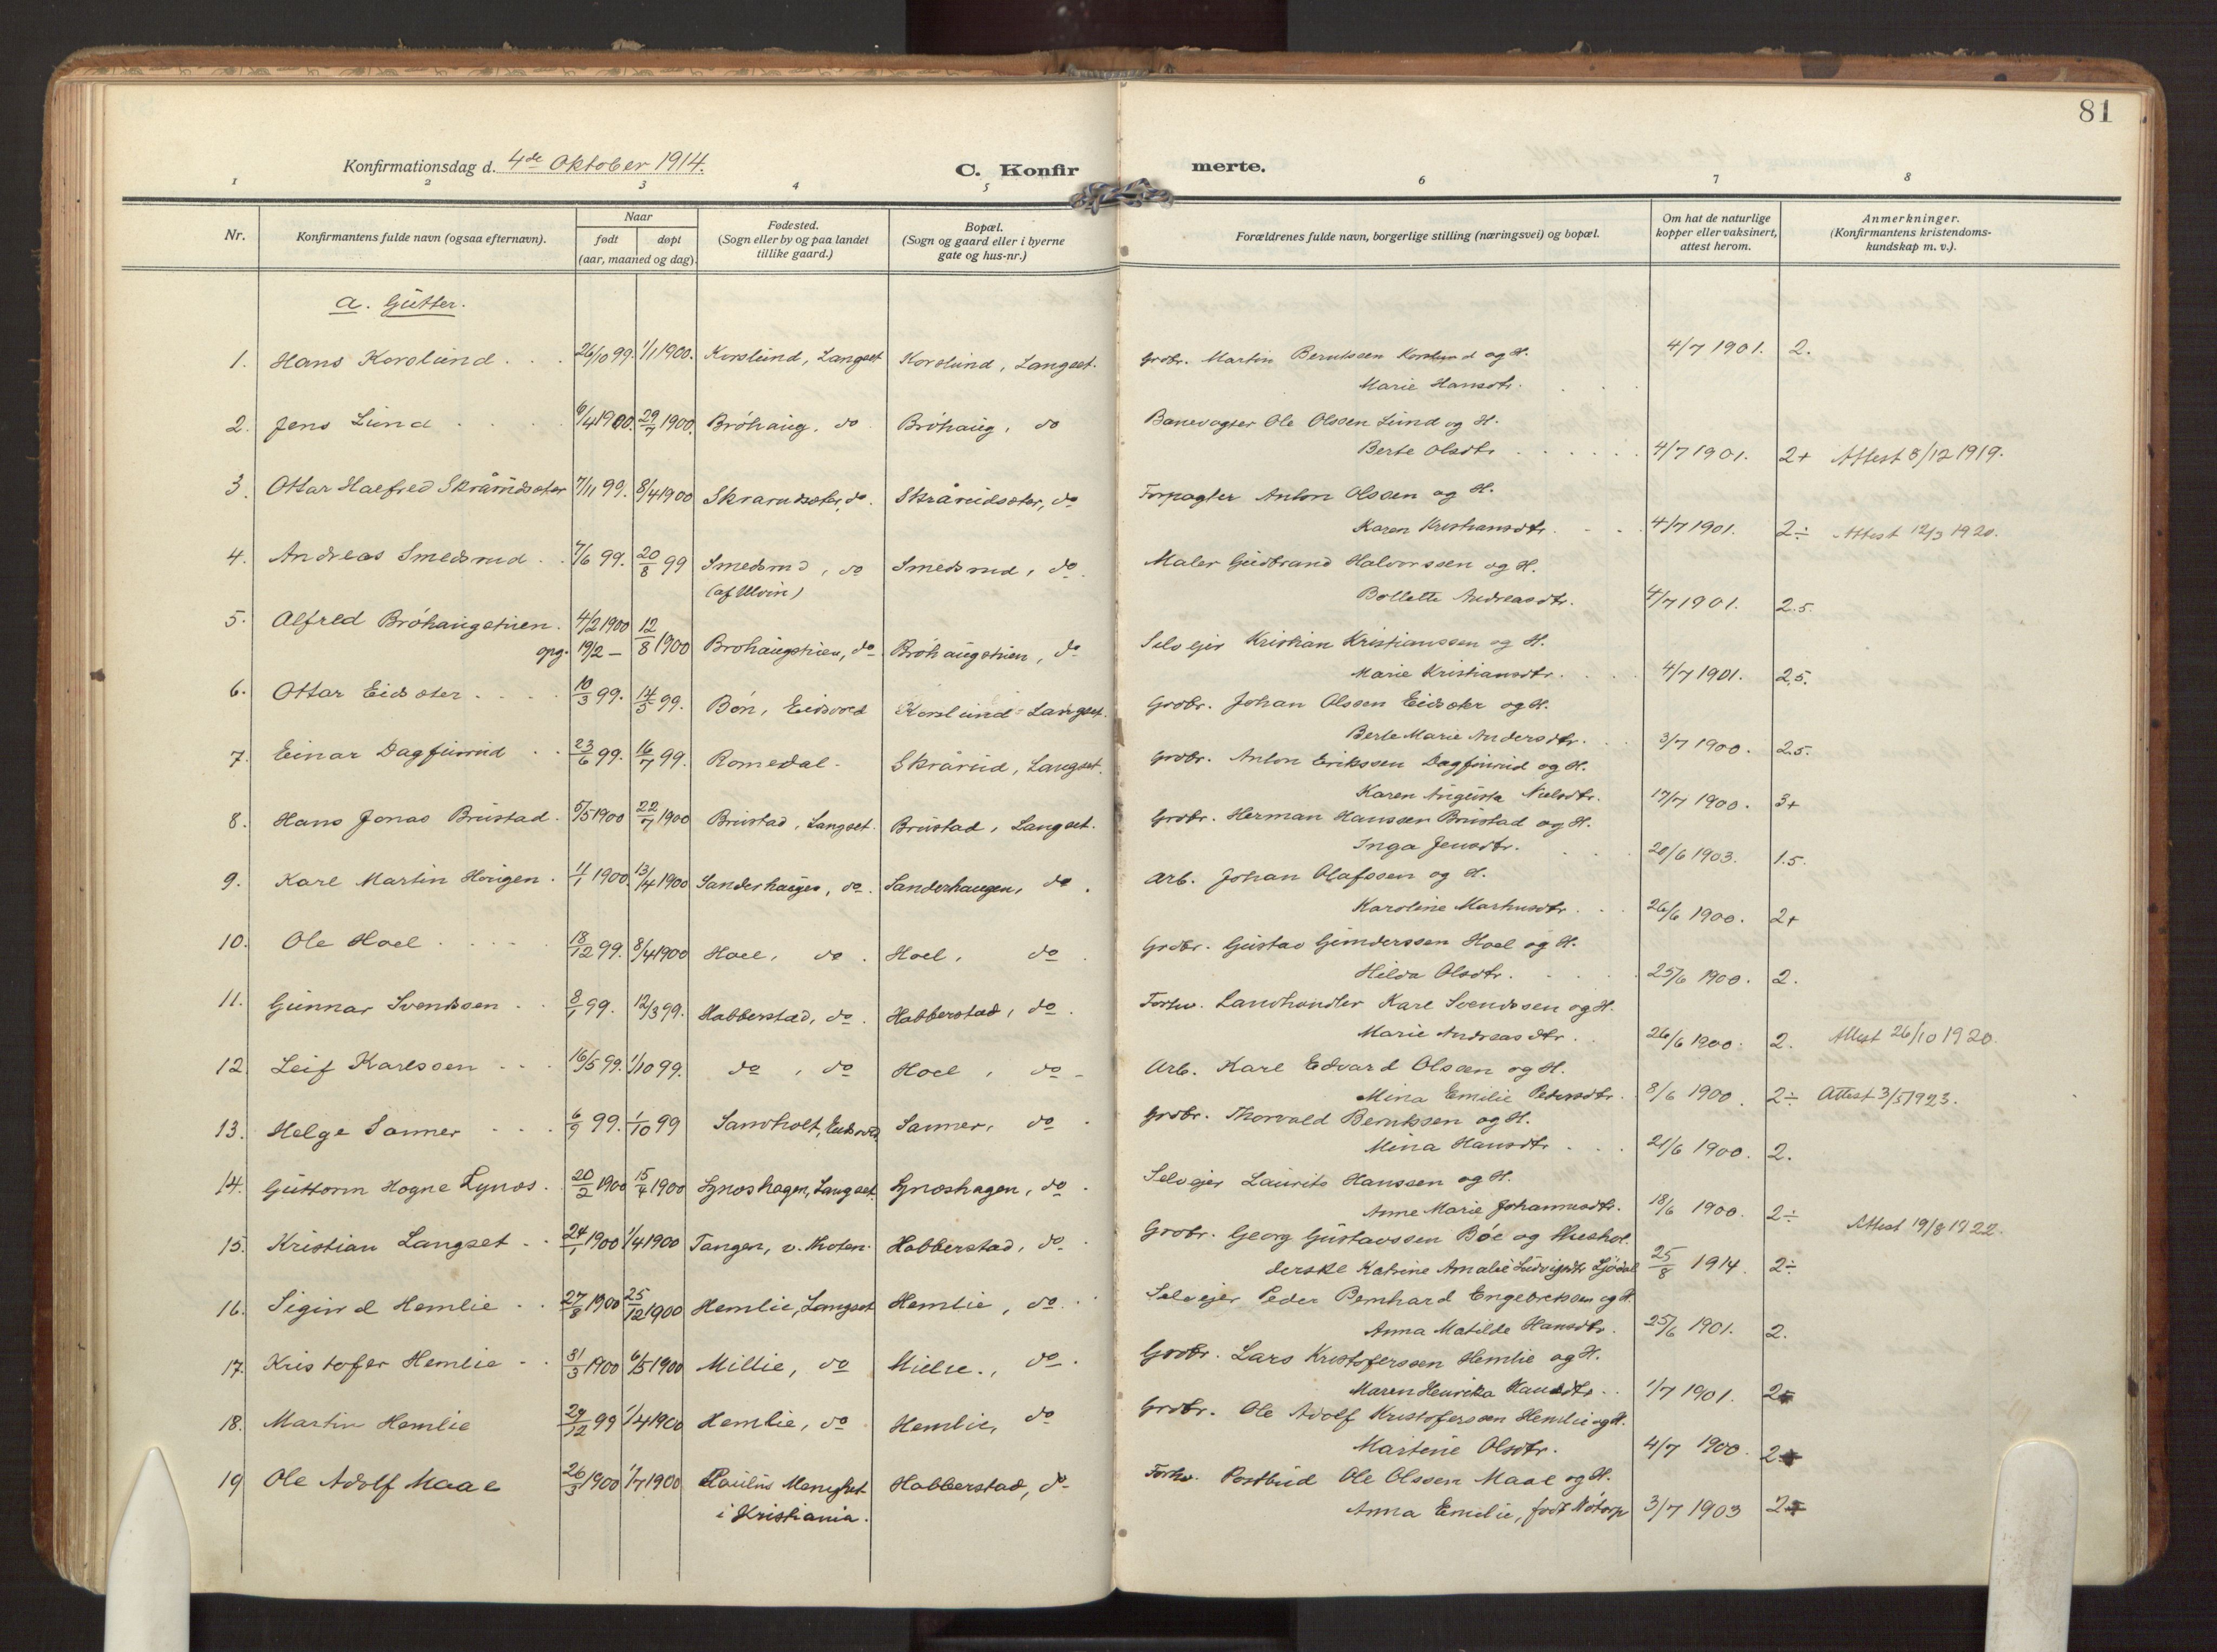 81
Konfirmationsdag d. 4de Oktober 1914. C. Konfirmerte.
1 2 3 4 5 6 7 8
Nr. Konfirmantens fulde navn (ogsaa efternavn). Naar født døpt (aar, maaned og dag). Fødested. (Sogn eller by og paa landet tillike gaard.) Bopæl. (Sogn og gaard eller i byerne gate og hus-nr.) Forældrenes fulde navn, borgerlige stilling (næringsvei) og bopæl. Om hat de naturlige kopper eller vaksinert, attest herom. Anmerkninger. (Konfirmantens kristendomskundskap m. v.).
a. Gutter.
1. Hans Korslund 26/10 99. 1/1 1900. Korslund, Langset Korslund, Langset. Grdbr. Martin Berntssen Korslund og H.
Marie Hansdtr. 4/7 1901. 2.
2. Jens Lund 6/4 1900. 29/7 1900. Bröhaug, do Bröhaug, do Banevogter Ole Olssen Lund og H.
Berte Olsdtr 4/7 1901. 2+ Attest 8/12 1919.
3. Ottar Halfred Skrårudsæter 7/11 99. 8/4 1900 Skrarudsæter, do. Skrårudsæter, do Forpagter Anton Olssen og H.
Karen Kristiansdtr. 4/7 1901. 2÷ Attest 12/3 1920.
4. Andreas Smedsrud 7/6 99. 20/8 99 Smedsrud, do Smedsrud, do. Maler Gudbrand Halvorssen og H.
(af Ulvin) Bollette Andreasdtr. 4/7 1901. 2.5.
5. Alfred Bröhaugstuen. 4/2 1900 12/8 1900 Bröhaugstuen, do. Bröhaugstuen, do Selvejer Kristian Kristianssen og H.
opg. 19/2 — Marie Kristiansdtr. 4/7 1901. 2.5.
6. Ottar Eidsæter 10/3 99. 14/5 99. Bön, Eidsvold Korslund Langset. Grdbr. Johan Olssen Eidsæter og H.
Berte Marie Andersdtr. 3/7 1900. 2.5.
7. Einar Dagfinrud 23/6 99. 16/7 99. Romedal Skårud, Langset. Grdbr. Anton Erikssen Dagfinrud og H.
Karen Augusta Nielsdtr. 17/7 1900. 3+
8. Hans Jonas Brustad. 5/5 1900 22/7 1900 Brustad, Langset. Brustad, Langset. Grdbr. Herman Hanssen Brustad og H.
Inga Jensdtr. 20/6 1903. 1.5.
9. Karl Martin Haugen. 11/1 1900 13/4 1900 Sanderhaugen, do. Sanderhaugen, do. Arb. Johan Olafssen og H.
Karoline Martinsdtr. 26/6 1900. 2+
10. Ole Hoel 18/12 99. 8/4 1900 Hoel, do. Hoel, do. Grdbr. Gustav Gunderssen Hoel og H.
Hilda Olsdtr. 25/6 1900. 2.
11. Gunnar Svendssen 8/1 99. 12/3 99. Habberstad, do. Habberstad, do. Forhv. Landhandler Karl Svendssen og H.
Marie Andreasdtr. 26/6 1900. 2. Attest 26/10 1920.
12. Leif Karlssen 16/5 99. 1/10 99. do, do Hoel, do Arb. Karl Edvard Olssen og H.
Mina Emilie Petersdtr. 8/6 1900. 2÷ Attest 3/5 1923.
13. Helge Sanner 6/9 99. 1/10 99 Sandholt, Eidsvold Sanner, do. Grdbr. Thorvald Berntssen og H.
Mina Hansdtr 21/6 1900. 2.
14. Guttorm Hogne Lynæs. 20/2 1900 15/4 1900 Lynæshagen, Langset. Lynæshagen, do. Selvejer Laurits Hanssen og H.
Anne Marie Johannesdtr. 18/6 1900. 2÷ Attest 19/8 1922.
15. Kristian Langset 24/1 1900 1/4 1900 Tangen, v. Thoten. Habberstad, do. Grdbr. Georg Gustavssen Böe og Hushol-
derske Katrine Amalie Ludvigsdtr. 25/8 1914. 2÷
16. Sigurd Hemlie 27/8 1900 25/12 1900 Hemlie, Langset Hemlie, do. Selvejer Peder Bernhard Engebretssen og H.
Anna Matilde Hansdtr. 25/6 1901. 2.
17. Kristofer Hemlie 31/3 1900 6/5 1900 Millie, do Millie, do. Grdbr. Lars Kristoferssen Hemlie og H.
Maren Henrika Hansdtr. 1/7 1901. 2
18. Martin Hemlie 29/12 99 1/4 1900 Hemlie, do Hemlie, do Grdbr. Ole Adolf Kristoferssen Hemlie og H.
Martine Olsdtr. 4/7 1900. 2
19 Ole Adolf Maal 26/3 1900 1/7 1900 Paulus Menighet Habberstad, do Forhv. Postbud Ole Olssen Maal og H.
i Kristiania. Anna Emilie, født 3/7 1903 2